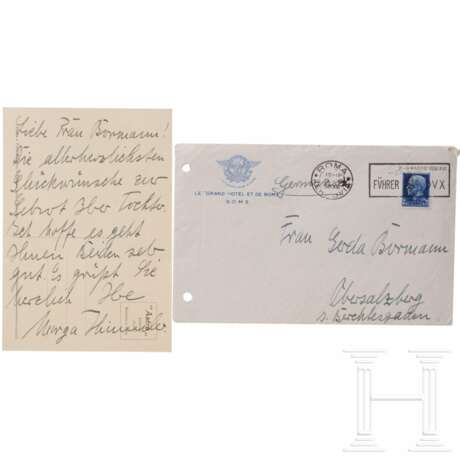 Liebe Frau Bormann!
Die allerherzlichsten
Glückwünsche zur
Geburt Ihrer Tochter.
Ich hoffe es geht
Ihnen Beiden sehr
gut. Es grüßt Sie
herzlich Ihre
Marga Himmler.
LE "GRAND HOTEL ET DE ROME"
ROME
Germania
ROMA
FÜHRER
DVX
Frau Gerda Bormann
Obersalzberg
b. Berchtesgaden
H